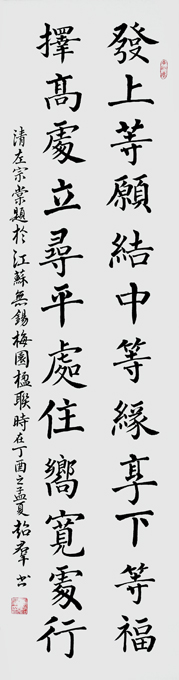 發上等願結中等緣享下等福
擇高處立尋平處住嚮寬處行
清左宗棠題於江蘇無錫梅園楹聯時在丁酉之孟夏韶群书